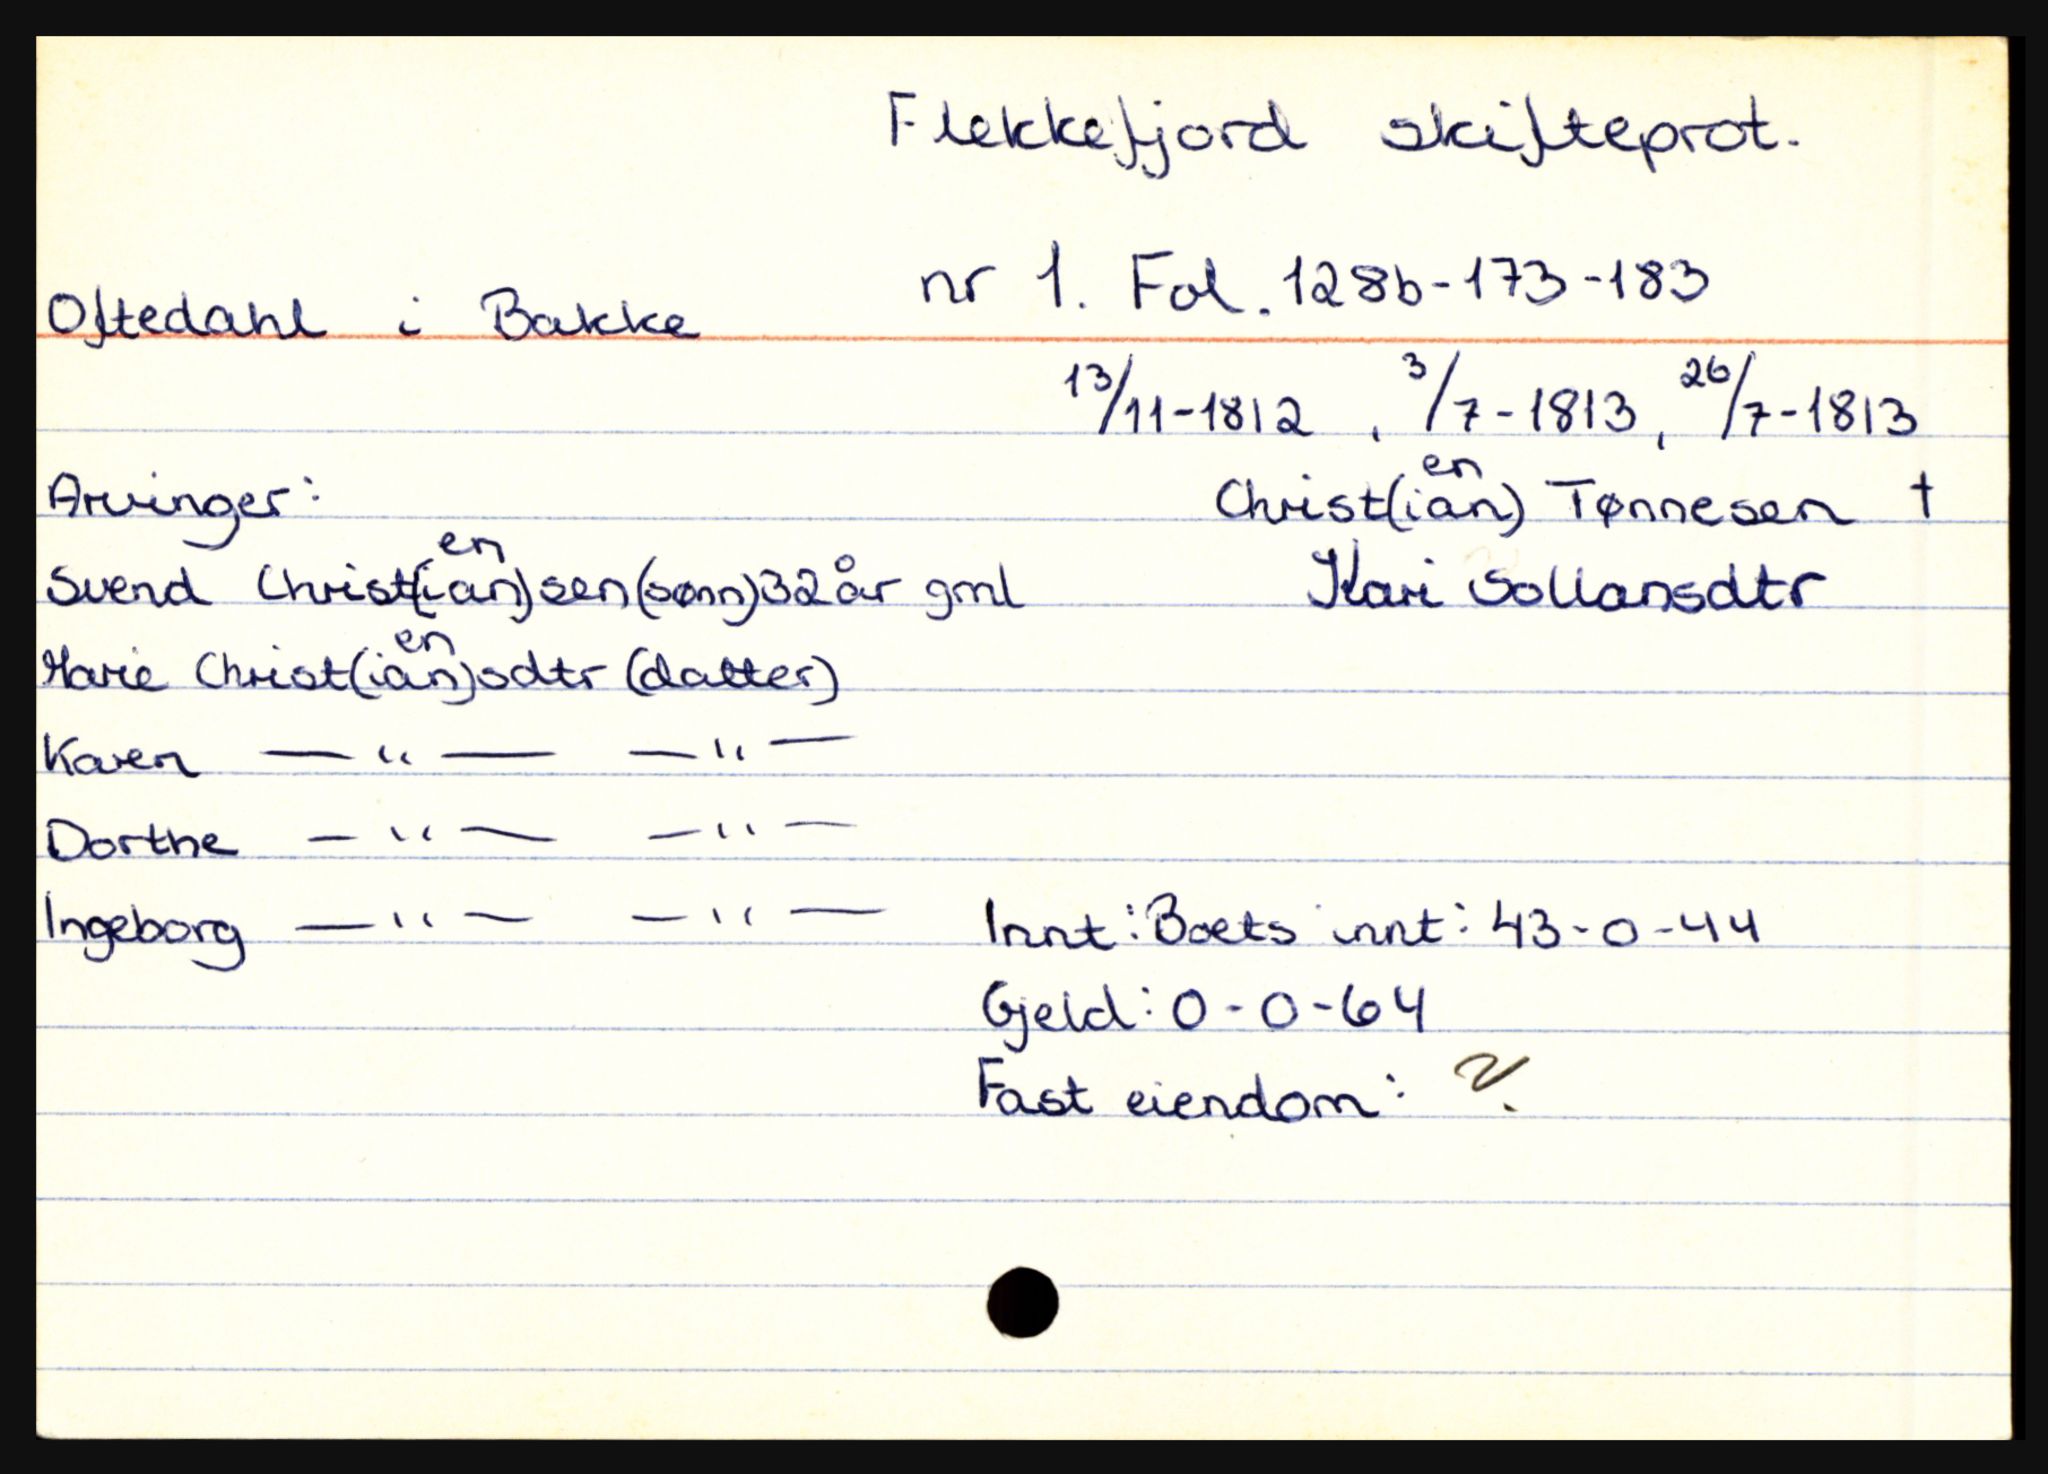 Flekkefjord skifteprot.
nr 1. Fol. 128b-173-183
Oftedahl i Bakke
13/11-1812, 3/7-1813, 26/7-1813
Arvinger:
en
Christ(ian) Tønnesen †
en
Svend Christ(ian)sen (sønn) 32 år gml
Kari Sollansdtr
en
Marie Christ(ian)sdtr (datter)
Karen —"— —"—
Dorthe —"— —"—
Ingeborg —"— —"—
Innt: Boets innt: 43-0-44
Gjeld: 0-0-64
Fast eiendom: ?